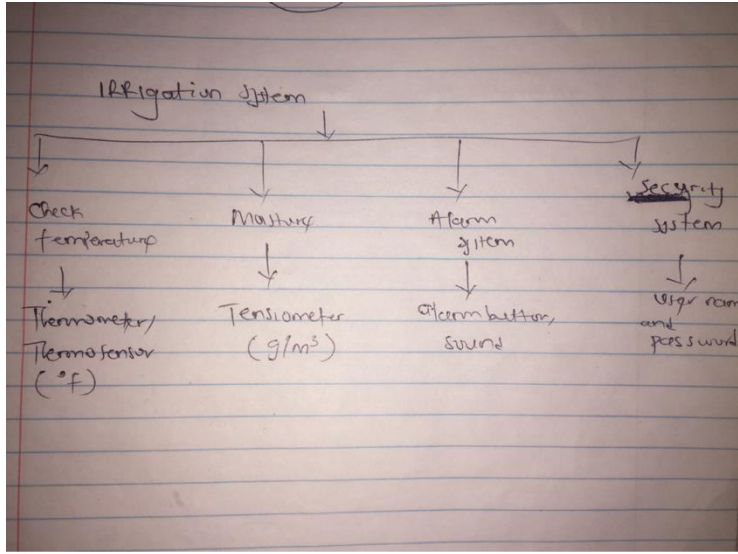 IRRigation system
Check
temperature
Thermometer/
Thermosensor
(°f)
Tensiometer
(g/m³)
Alarm
system
alarm button,
sound
Security
system
and
password